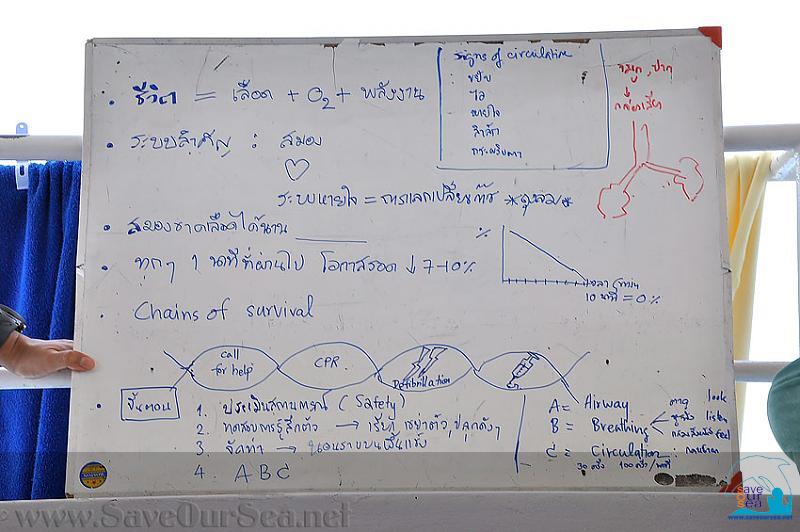 ชีวิต = เลือด + O2 + พลังงาน
signs of circulation
ขยับ
ไอ
หายใจ
สำลัก
กระพริบตา
จมูก, ปาก
ระบบสำคัญ : สมอง
ระบบหายใจ = การแลกเปลี่ยนก๊าซ
สมองขาดเลือดได้นาน
ทุกๆ 1 นาทีที่ผ่านไป โอกาสรอด ↓ 7-10%
%
เวลา
10 นาที = 0%
Chains of survival
call for help
CPR
Defibrillation
ขั้นตอน
1. ประเมินสถานการณ์ (Safety)
2. ทดสอบการรู้สึกตัว → เรียก, เขย่าตัว, ปลุกดังๆ
3. จัดท่า → นอนราบบนพื้นแข็ง
4. A B C
A = Airway
B = Breathing
ตาดู look
หูฟัง listen
feel
C = Circulation :
30 ครั้ง 100 ครั้ง/นาที
www.SaveOurSea.net
save our sea
www.saveoursea.net